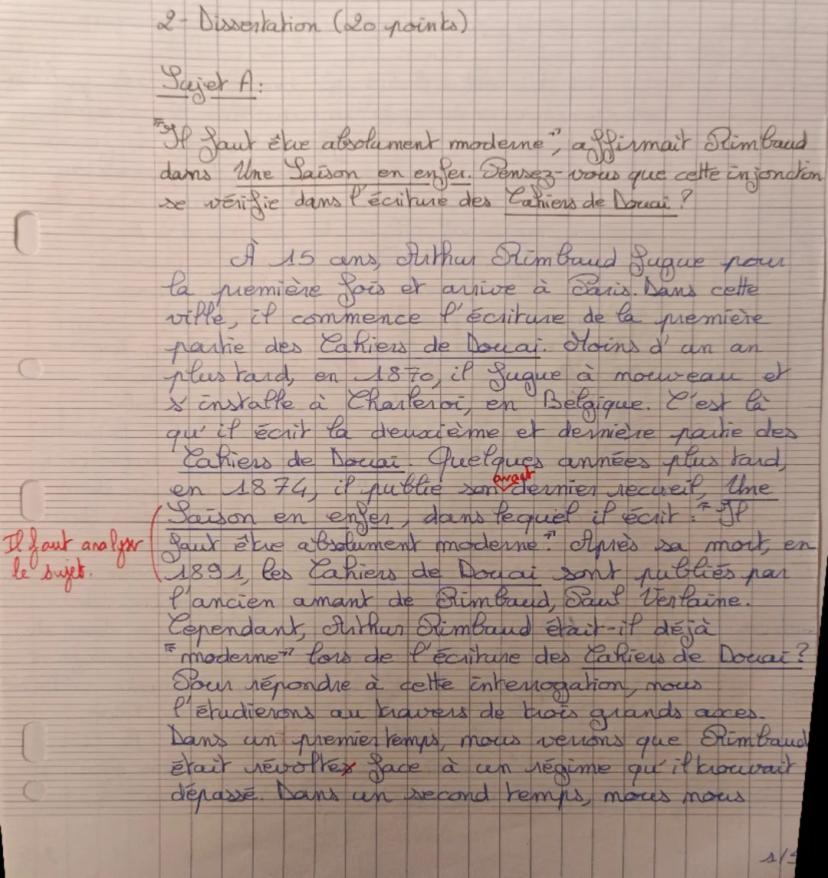 2- Dissertation (20 points)
Sujet A:
"Il faut être absolument moderne", affirmait Rimbaud
dans Une Saison en enfer. Pensez-vous que cette injonction
se vérifie dans l'écriture des Cahiers de Douai ?
À 15 ans, Arthur Rimbaud fugue pour
la première fois et arrive à Paris. Dans cette
ville, il commence l'écriture de la première
partie des Cahiers de Douai. Moins d'un an
plus tard, en 1870, il fugue à nouveau et
s'installe à Charleroi, en Belgique. C'est là
qu'il écrit la deuxième et dernière partie des
Cahiers de Douai. Quelques années plus tard,
avant
en 1874, il publie son dernier recueil, Une
Saison en enfer, dans lequel il écrit : "Il
Il faut analyser
faut être absolument moderne". Après sa mort, en
le sujet.
1891, les Cahiers de Douai sont publiés par
l'ancien amant de Rimbaud, Paul Verlaine.
Cependant, Arthur Rimbaud était-il déjà
"moderne" lors de l'écriture des Cahiers de Douai ?
Pour répondre à cette interrogation, nous
l'étudierons au travers de trois grands axes.
Dans un premier temps, nous verrons que Rimbaud
était révolté face à un régime qu'il trouvait
dépassé. Dans un second temps, nous nous